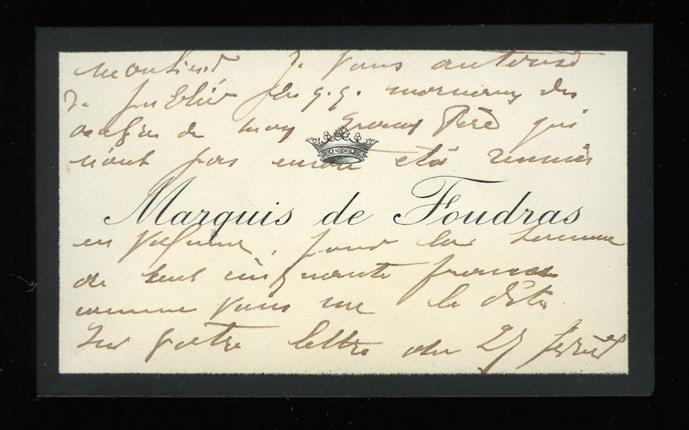 Monsieur je vous autorise
de publier q.q. morceaux des
de mon Grand Père qui
n'ont pas encore été réunis
Marquis de Foudras
en volume, pour la somme
de cent cinquante francs
comme vous me le dite
sur votre lettre du 25 février